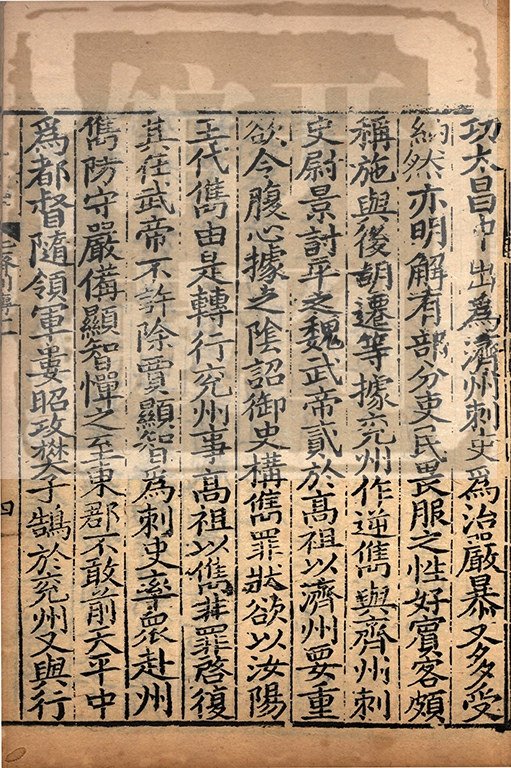 功太昌中出為濟州刺史為治嚴暴又多受
納然亦明解有部分吏民畏服之性好賓客頗
稱施與後胡遷等據兗州作逆儁與齊州刺
史尉景討平之魏武帝貳於高祖以濟州要重
欲令腹心據之陰詔御史構儁罪狀欲以汝陽
王代儁由是轉行兗州事高祖以儁非罪啓復
其任武帝不許除賈顯智為刺史率眾赴州
儁防守嚴備顯智憚之至東郡不敢前天平中
為都督隨領軍婁昭政樊子鵠於兗州又與行
四